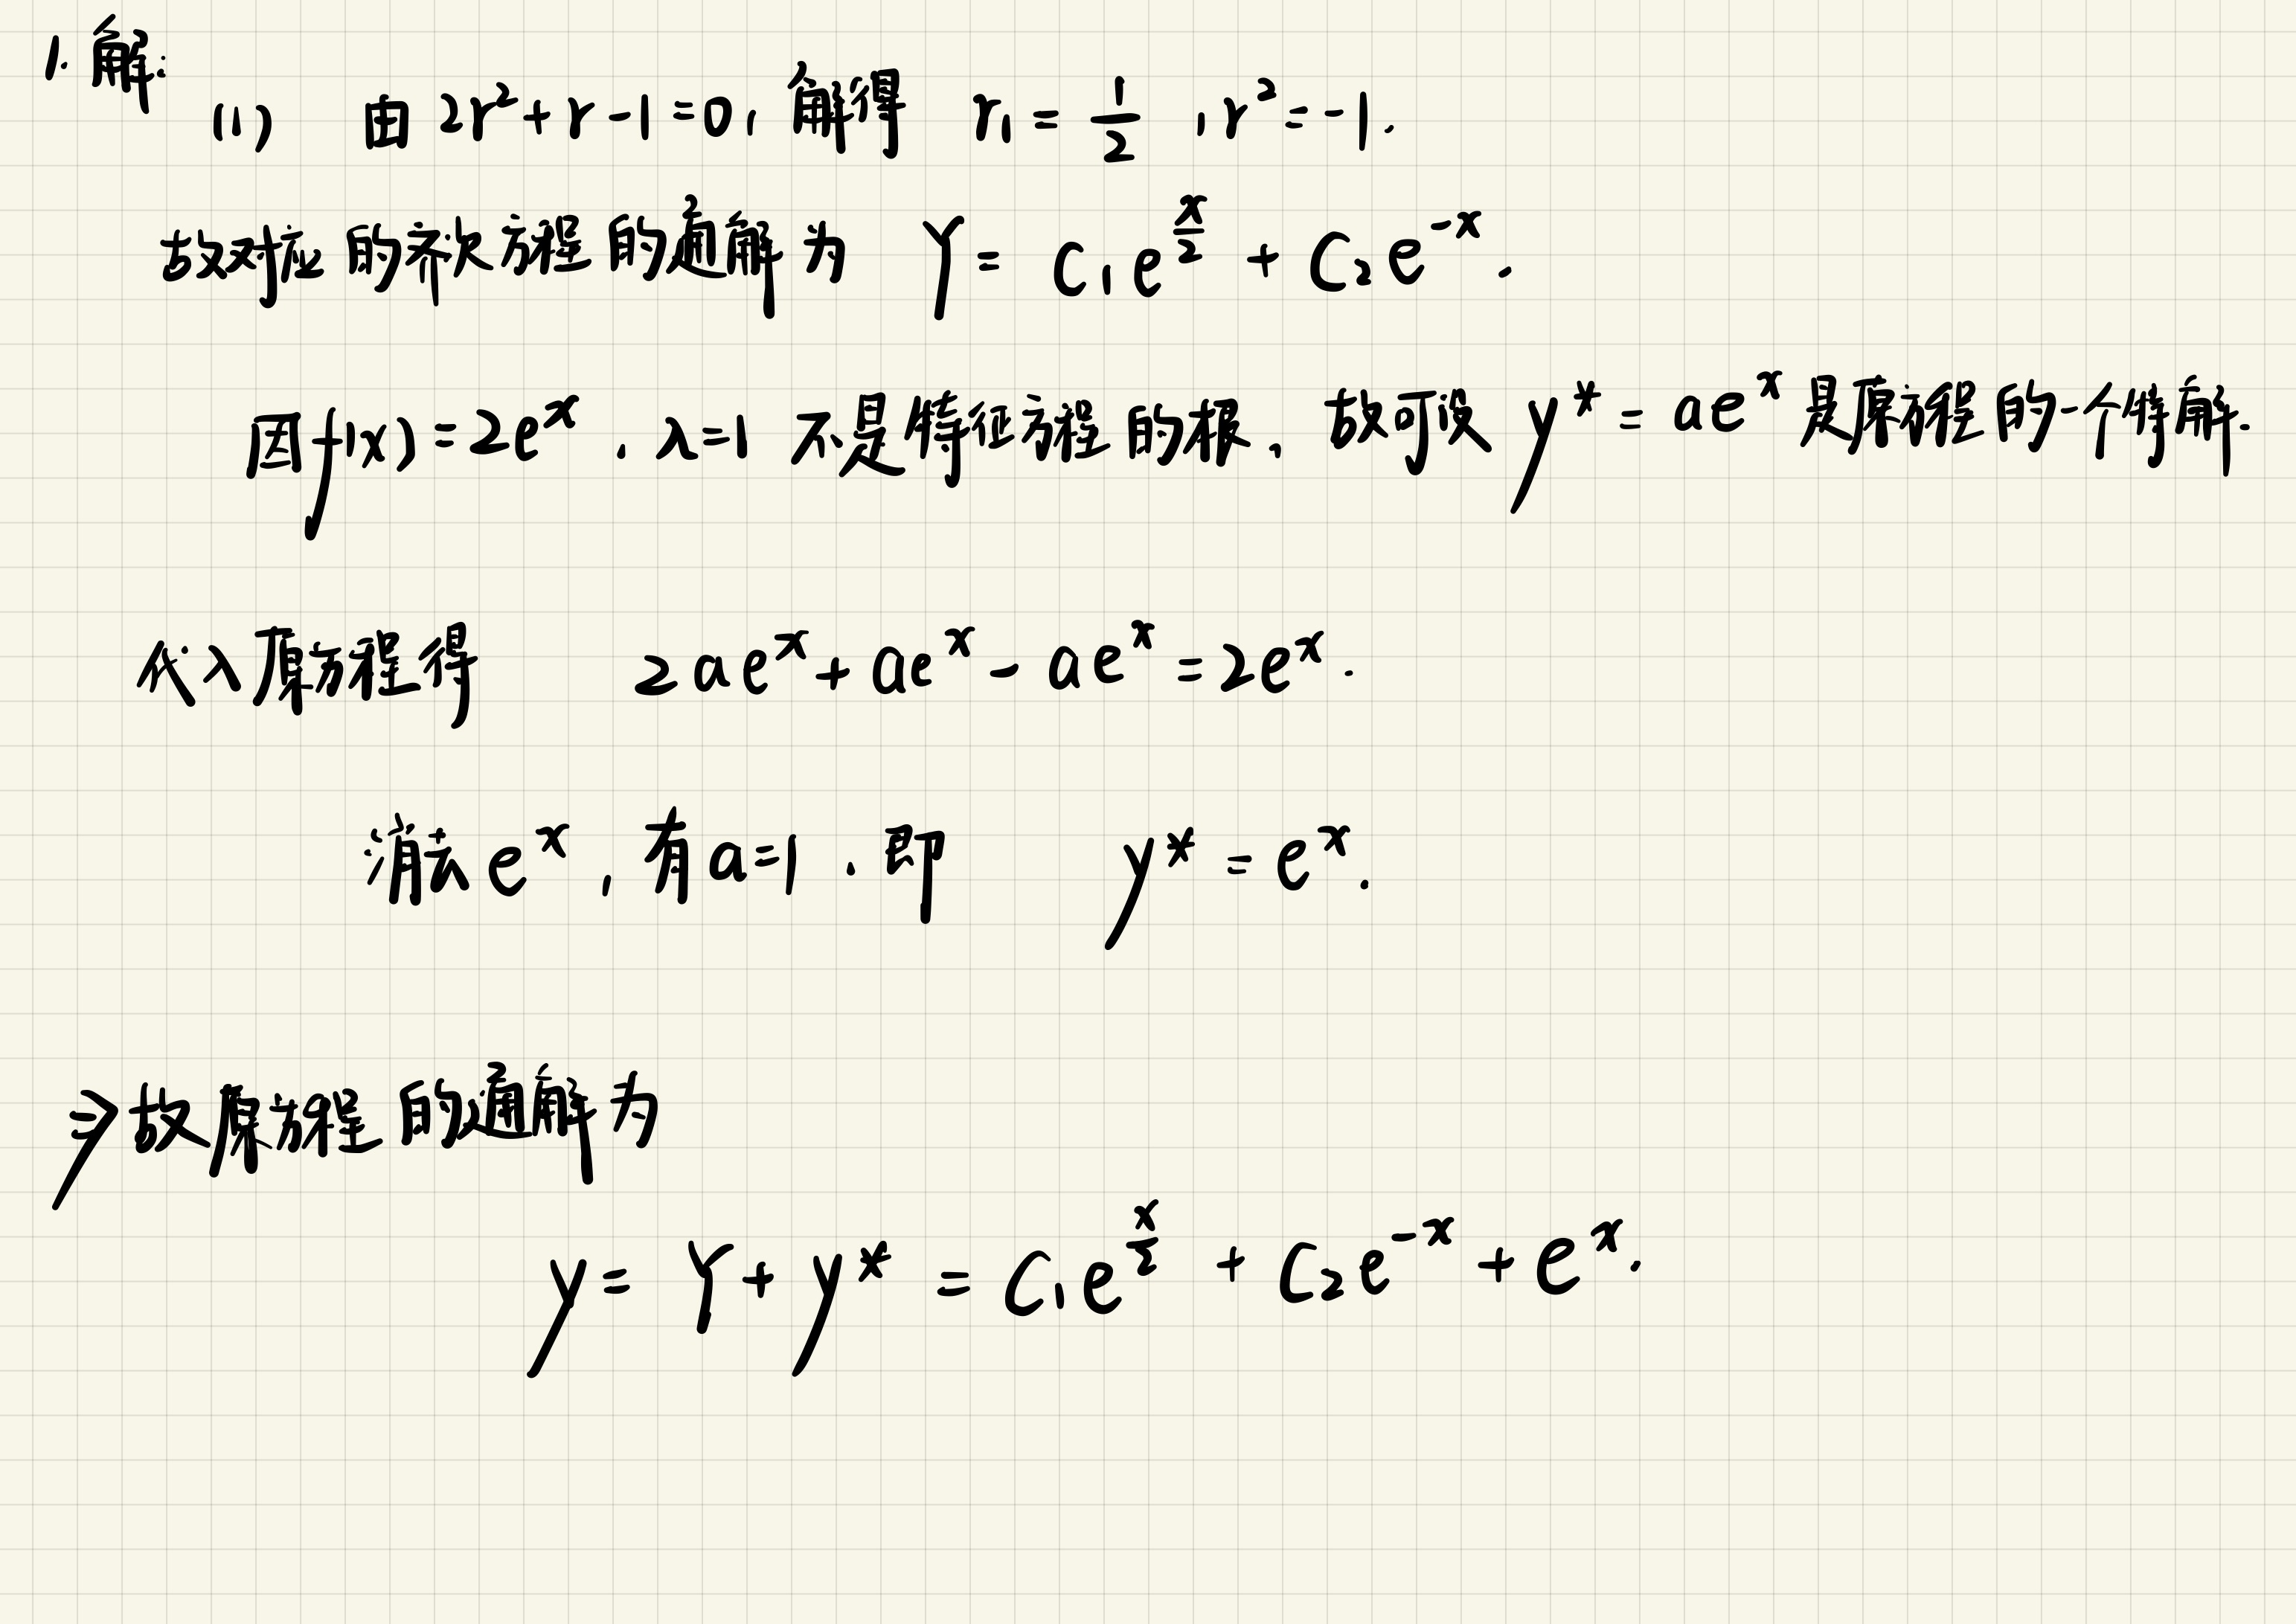 1. 解:
(1) 由 2r²+r-1=0, 解得 r₁=1/2, r²=-1.
故对应的齐次方程的通解为 Y= C₁e^{x/2} + C₂e^{-x}.
因f(x)=2e^x. λ=1 不是特征方程的根. 故可设 y*= ae^x 是原方程的一个特解.
代入原方程得 2ae^x+ae^x-ae^x=2e^x.
消去e^x, 有a=1. 即 y*=e^x.
⇒故原方程的通解为
y=Y+y*=C₁e^{x/2}+C₂e^{-x}+e^x.